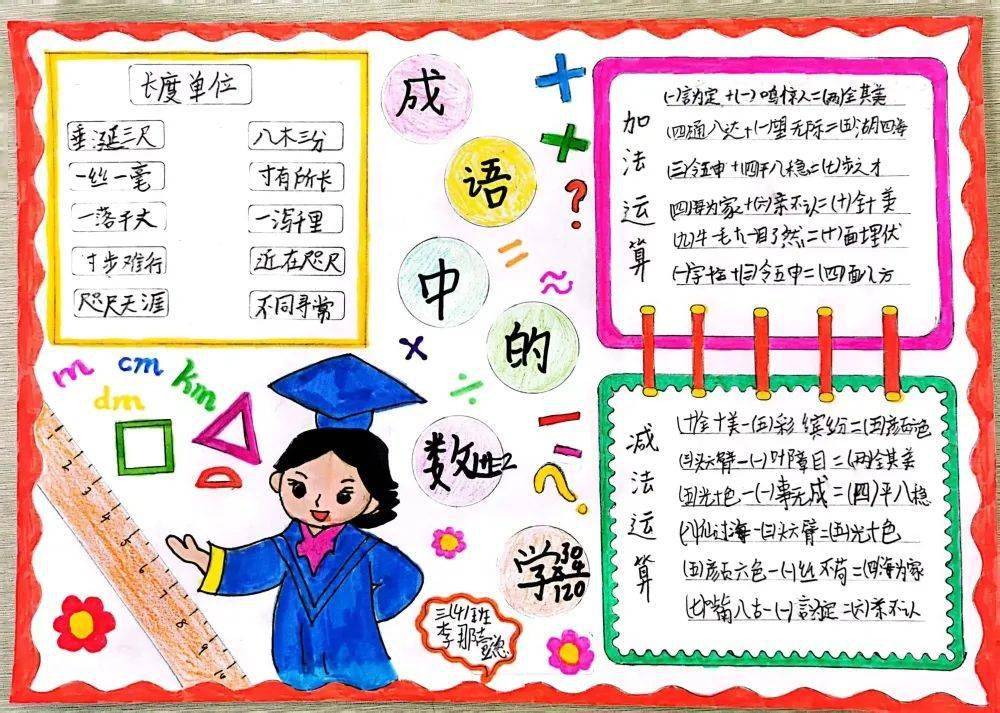 长度单位
垂涎三尺 八木三分
一丝一毫 寸有所长
一落千丈 一泻千里
寸步难行 近在咫尺
咫尺天涯 不同寻常
成
语
中
的
数
学
30
×4
120
m cm km
dm
加法运算
(一)言为定+(一)鸣惊人=(两)全其美
(四)通八达+(一)望无际=(五)湖四海
(三)令五申+(四)平八稳=(七)步之才
(四)海为家+(六)亲不认=(十)全十美
(九)牛一毛+(一)目了然=(十)面埋伏
(一)字千金+(三)令五申=(四)面八方
减法运算
(十)全十美-(五)彩缤纷=(五)颜六色
(三)头六臂-(一)叶障目=(两)全其美
(五)光十色-(一)事无成=(四)平八稳
(八)仙过海-(三)头六臂=(五)光十色
(五)颜六色-(一)丝不苟=(四)海为家
(七)嘴八舌-(一)言为定=(六)亲不认
三(4)班
李那